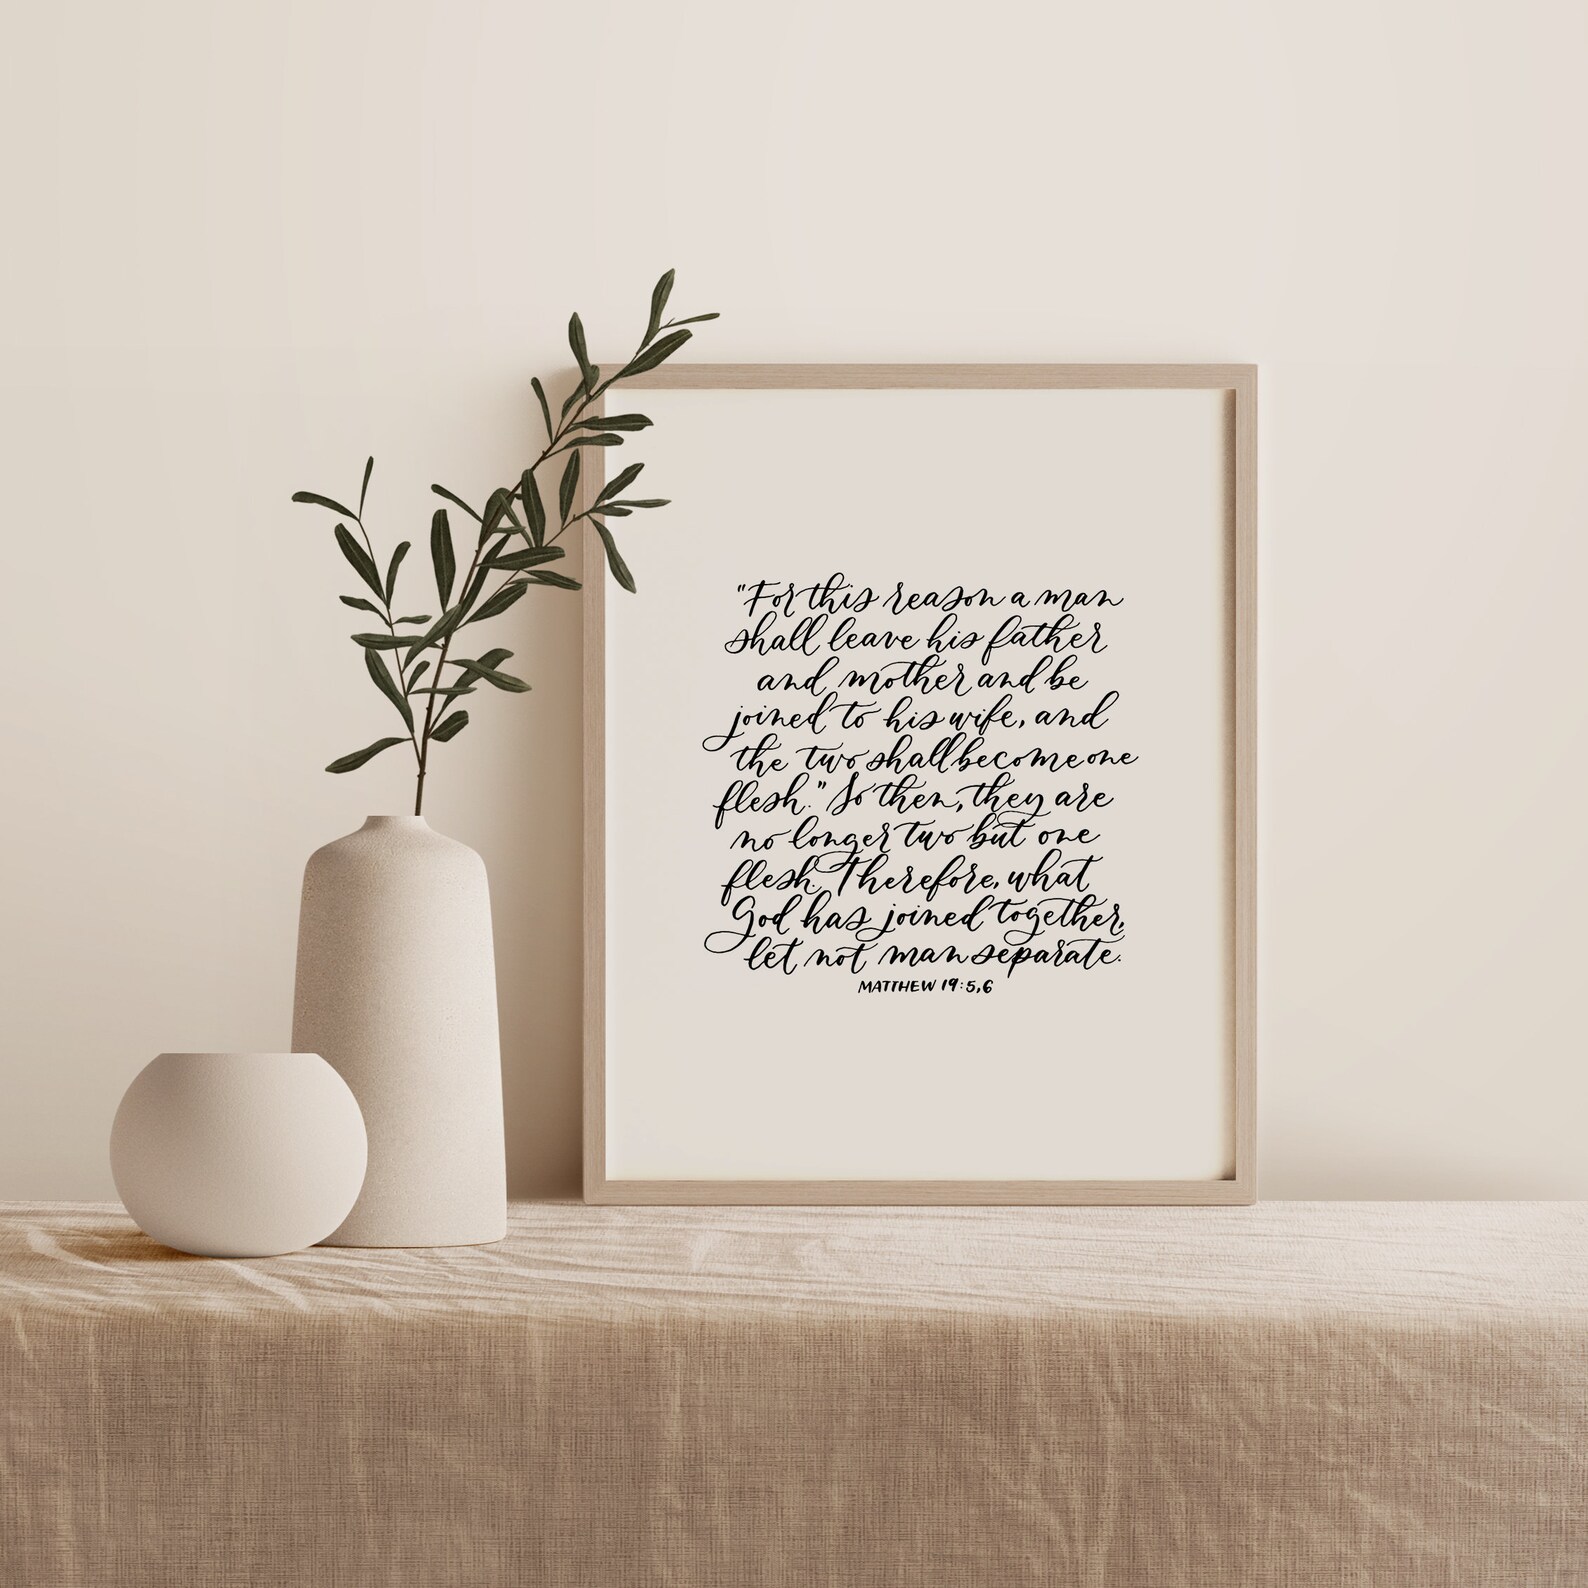 "For this reason a man
shall leave his father
and mother and be
joined to his wife, and
the two shall become one
flesh." So then, they are
no longer two but one
flesh. Therefore, what
God has joined together,
let not man separate.
MATTHEW 19:5,6